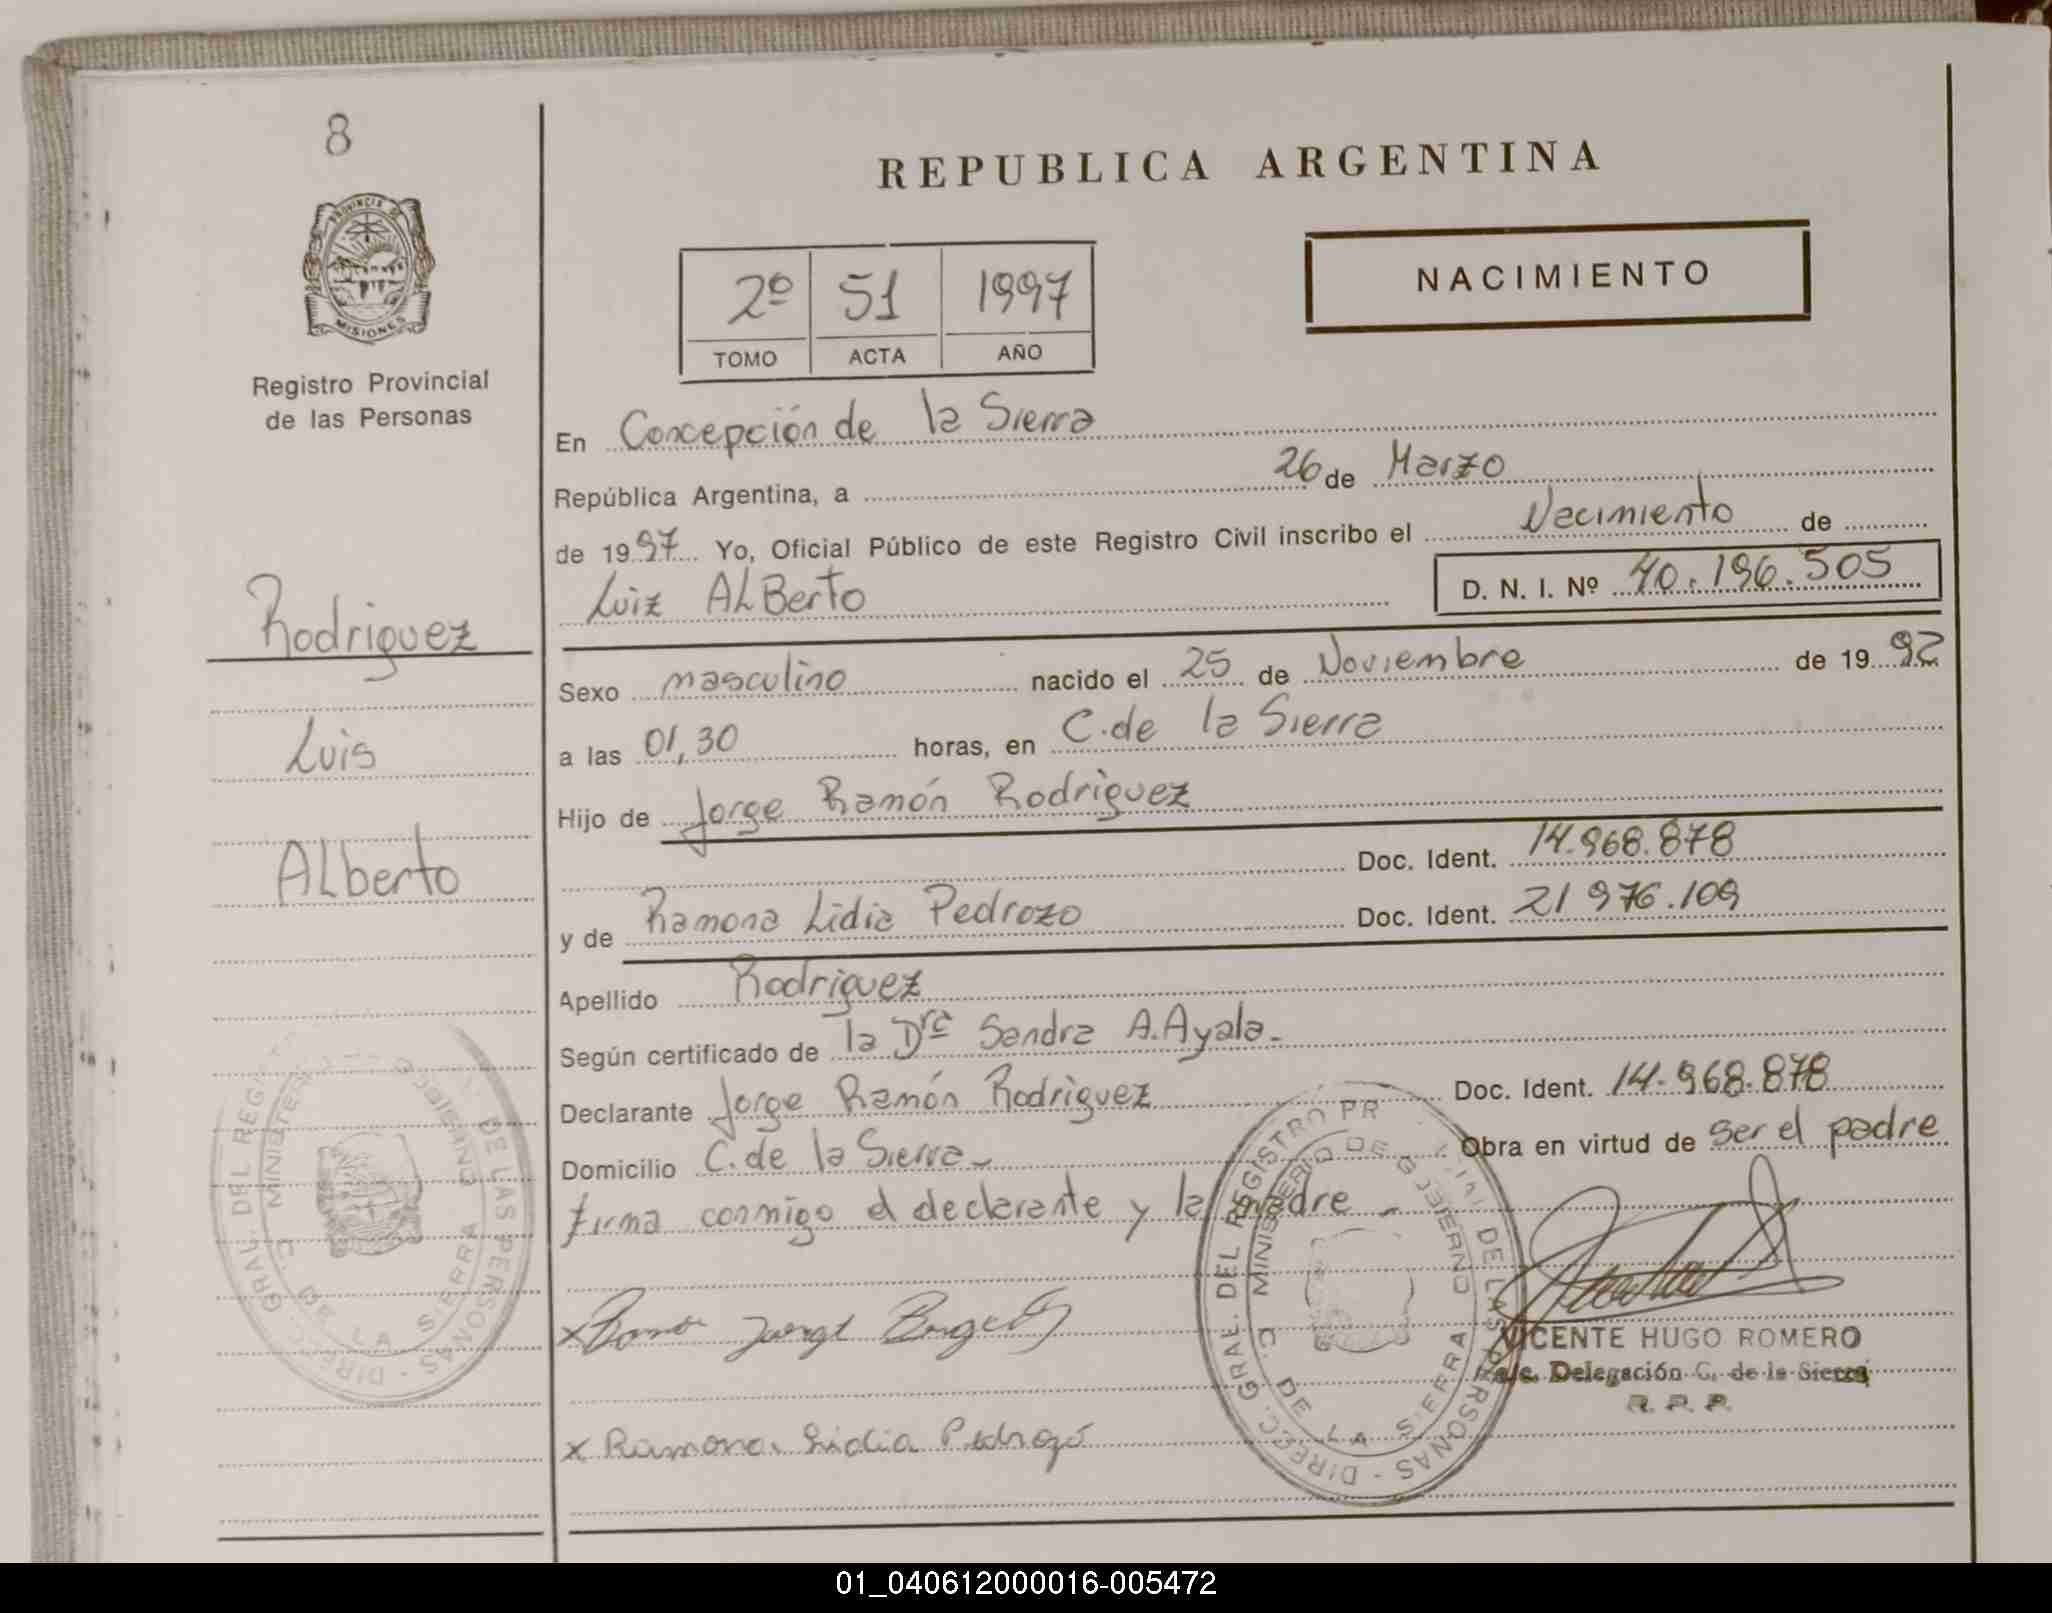 8
PROVINCIA DE
MISIONES
Registro Provincial
de las Personas
Rodriguez
Luis
ALberto
REPUBLICA ARGENTINA
NACIMIENTO
2º 51 1997
TOMO ACTA AÑO
En Concepción de la Sierra
República Argentina, a 26 de Marzo
de 1997 Yo, Oficial Público de este Registro Civil inscribo el Nacimiento de
Luiz ALBerto D. N. I. Nº 40.196.505
Sexo masculino nacido el 25 de Noviembre de 1992
a las 01,30 horas, en C. de la Sierra
Hijo de Jorge Ramón Rodriguez
Doc. Ident. 14.968.878
y de Ramona Lidia Pedrozo Doc. Ident. 21 976.109
Apellido Rodriguez
Según certificado de la Dra Sandra A. Ayala-
Declarante Jorge Ramón Rodriguez Doc. Ident. 14.968.878
Domicilio C. de la Sierra- Obra en virtud de ser el padre
firma conmigo el declarante y la madre -
x Ramona Lidia Pedrozo
VICENTE HUGO ROMERO
a/c. Delegación C. de la Sierra
R. P. P.
DIRECC. GRAL. DEL REGISTRO PR DE LAS PERSONAS
MINISTERIO DE GOBIERNO
C. DE LA SIERRA
DIRECC. GRAL. DEL REGIST DE LAS PERSONAS
MINISTERIO GOBIERNO
C. DE LA SIERRA
01_040612000016-005472